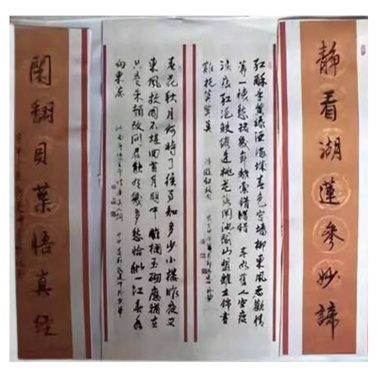 靜看湖蓮參妙諦
红酥手黄縢酒满城春色宫墙柳東風惡歡情
薄一懷愁緒幾年離索错错错春如舊人空瘦
淚痕红浥鲛绡透桃花落闲池阁山盟雖在錦書
難托莫莫莫
春花秋月何時了往事知多少小樓昨夜又
東風故國不堪回首月明中雕欄玉砌應猶在
只是朱顏改問君能有幾多愁恰似一江春水
向東流
閑翻貝葉悟真經